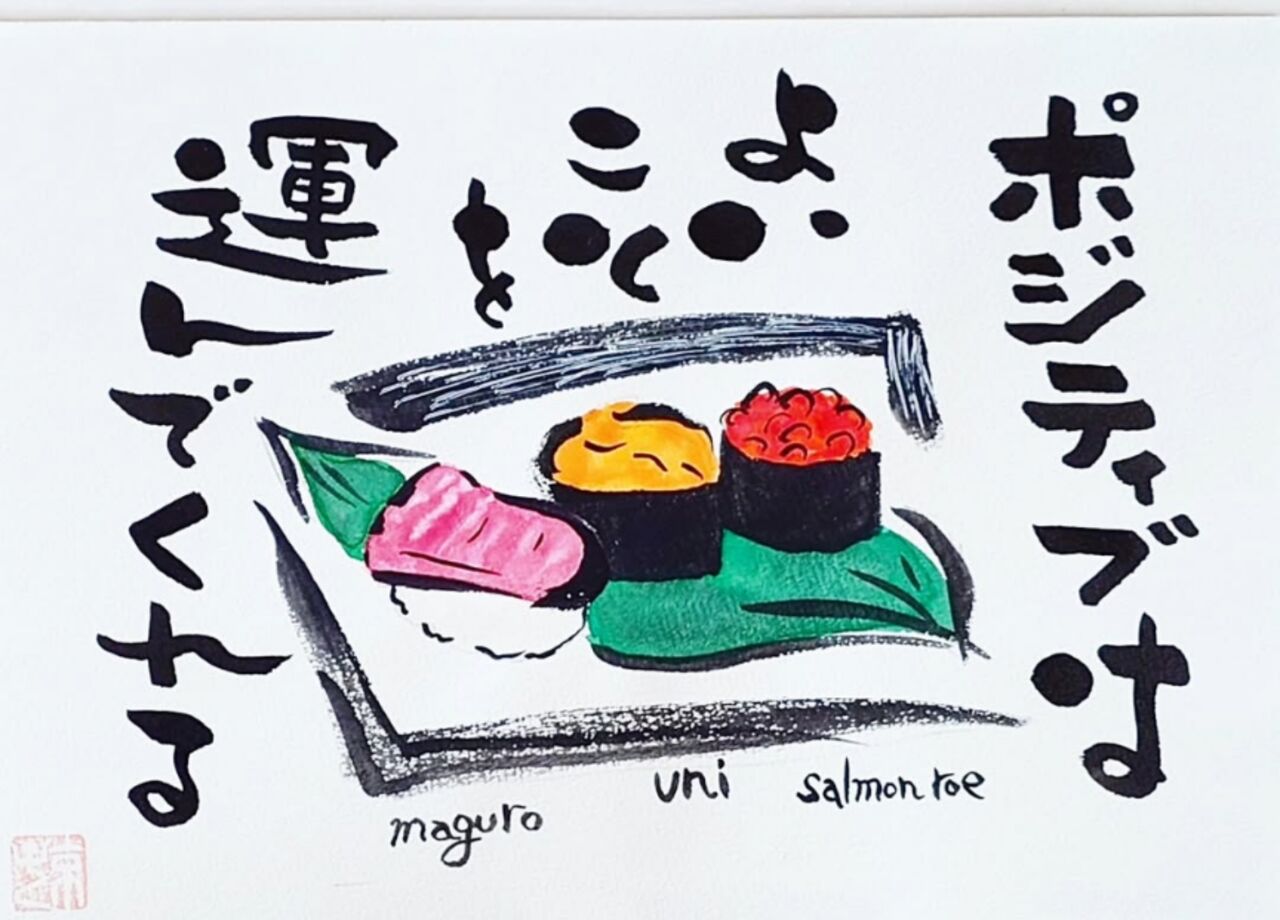 ポジティブは
よい
こと
を
運んでくれる
maguro
uni
salmon roe